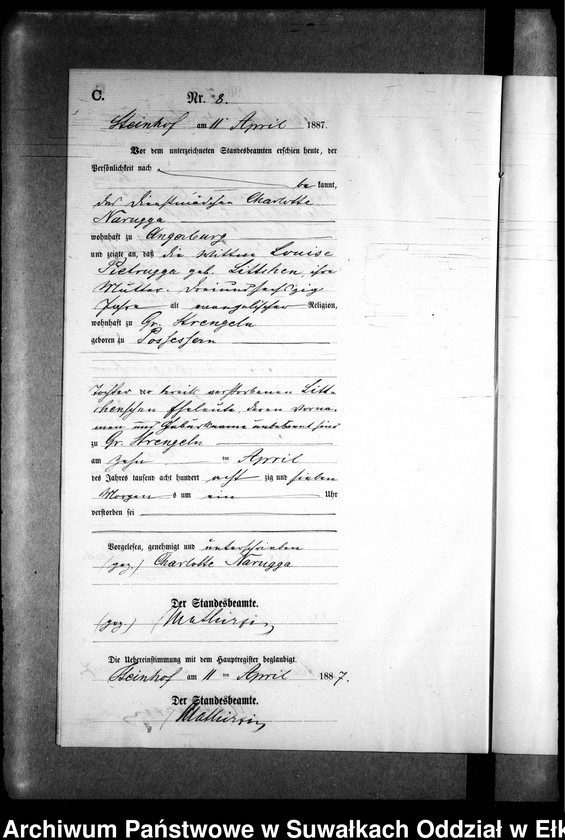 C.
Nr. 8.
Steinhof am 11 April 1887.
Vor dem unterzeichneten Standesbeamten erschien heute, der
Persönlichkeit nach
be kannt,
das Dienstmädchen Charlotte
Narugga
wohnhaft zu Angerburg
und zeigte an, daß die Wittwe Louise
Pietrugga geb. Littchen, ihre
Mutter, dreiundsechszig
Jahre alt evangelischer Religion,
wohnhaft zu Gr. Strengeln
geboren zu Possessern
Tochter der bereits verstorbenen Litt-
chenschen Eheleute, deren Vorna-
men und Geburtsname unbekannt sind
zu Gr. Strengeln
am zehn ten April
des Jahres tausend acht hundert acht zig und sieben
Morgen s um ein Uhr
verstorben sei
Vorgelesen, genehmigt und unterschrieben
(gez.) Charlotte Narugga
Der Standesbeamte.
(gez.)
Die Uebereinstimmung mit dem Hauptregister beglaubigt.
Steinhof am 11 ten April 1887.
Der Standesbeamte.
Archiwum Państwowe w Suwałkach Oddział w Ełk